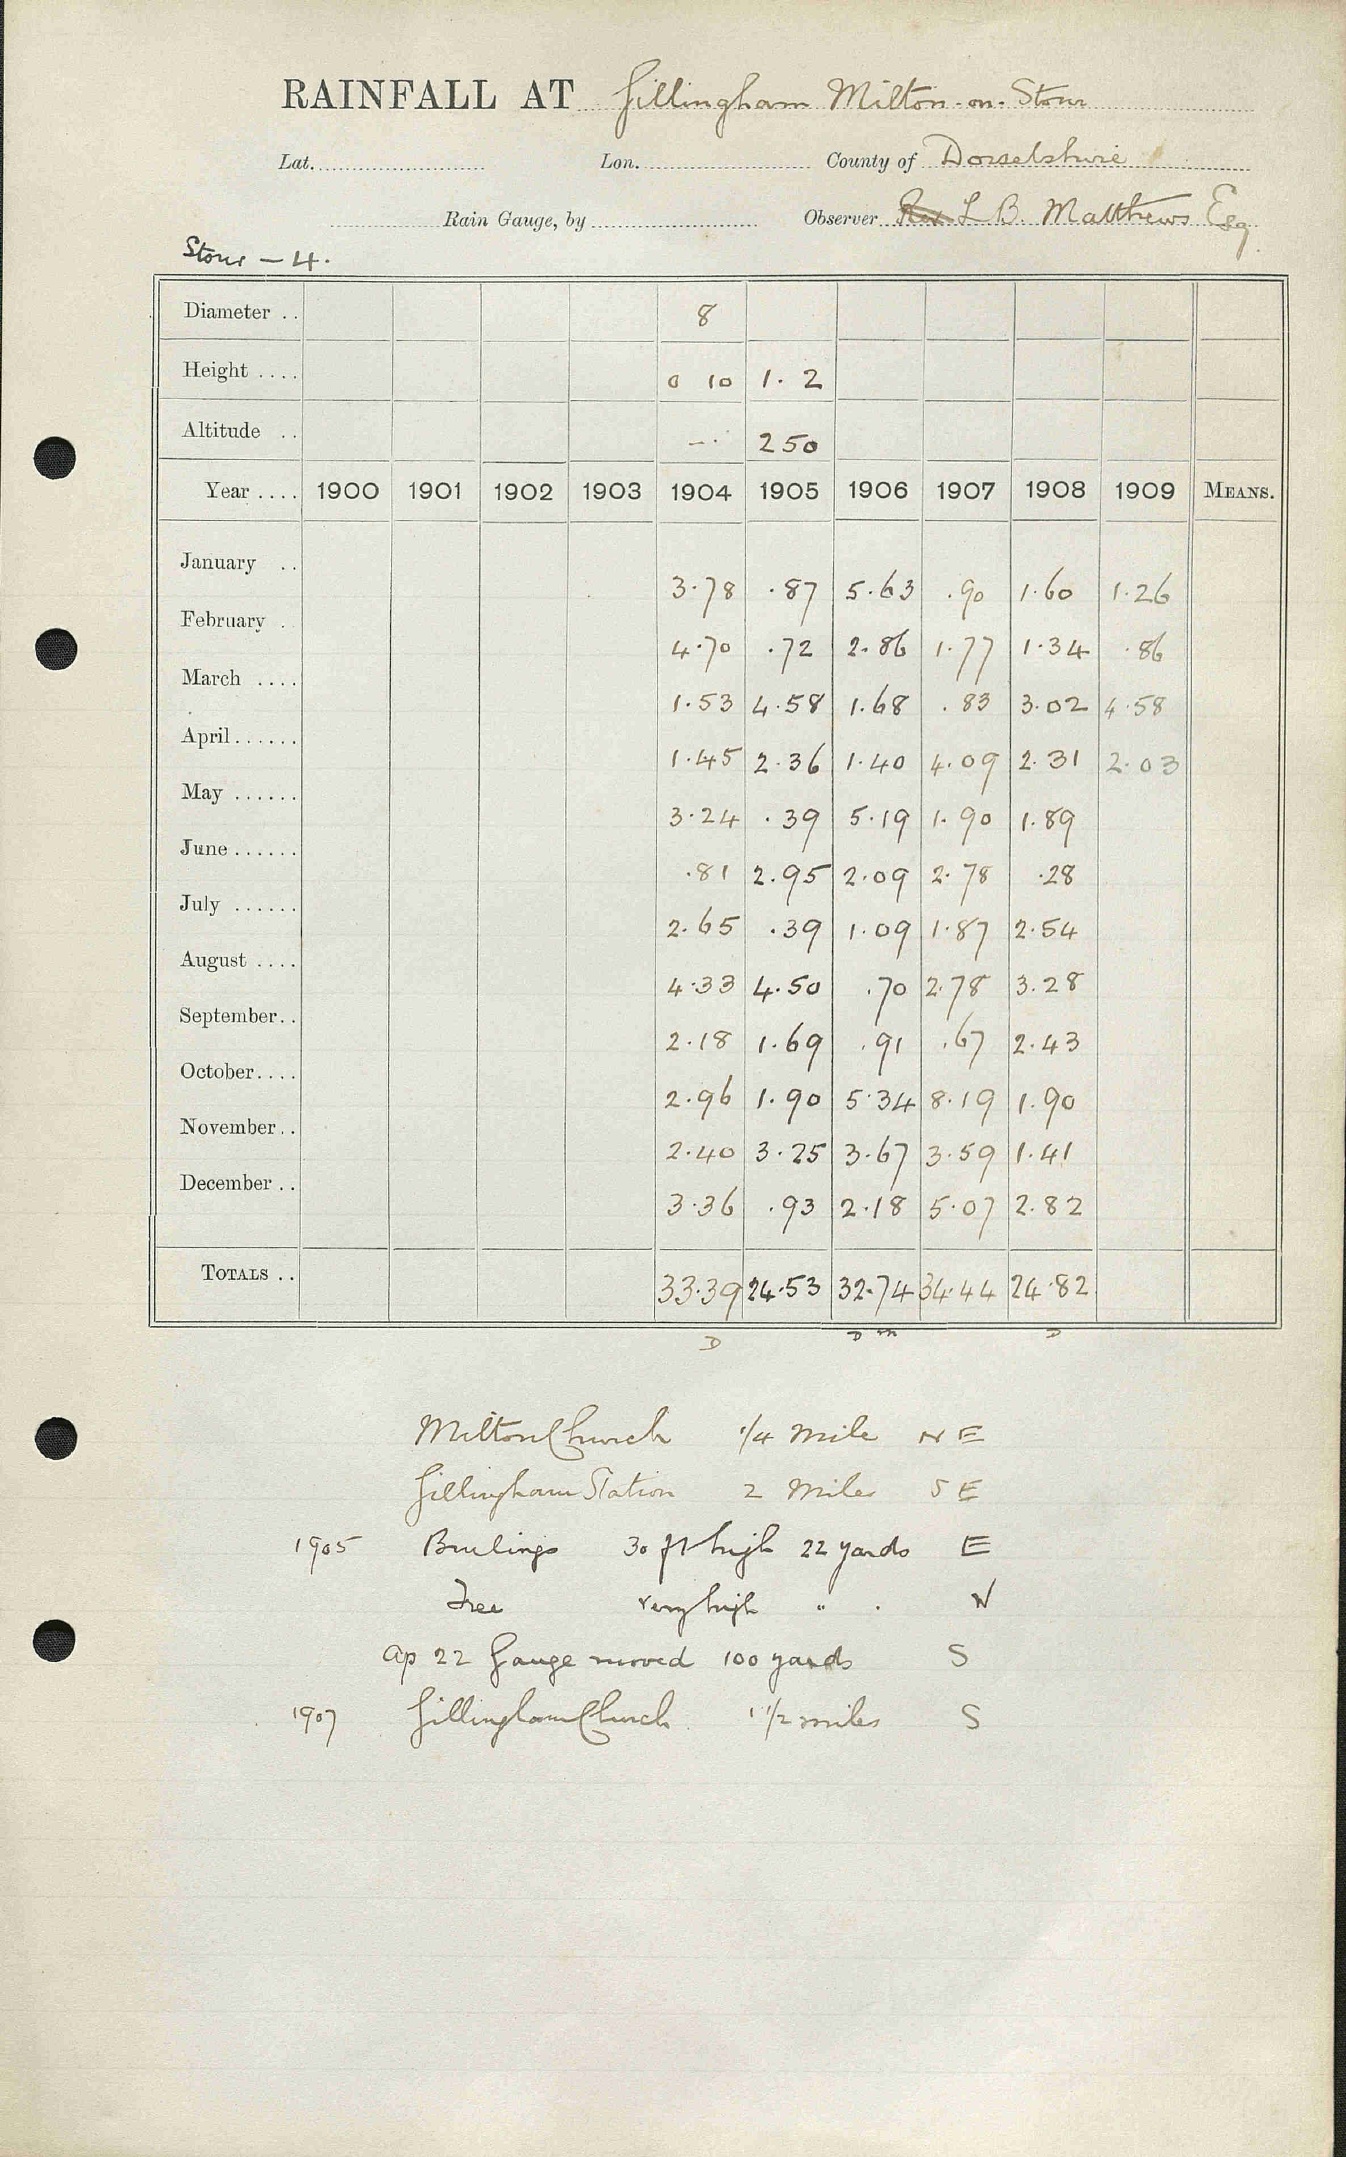 RAINFALL AT Gillingham Milton-on-Stour
Lat. Lon. County of Dorsetshire
Rain Gauge, by Observer Rev L B. Matthews Esq.
Stour - 4.
Diameter .. 8
Height .... 0 10 1. 2
Altitude .. — 250
Year .... 1900 1901 1902 1903 1904 1905 1906 1907 1908 1909 MEANS.
January .. 3.78 .87 5.63 .90 1.60 1.26
February . 4.70 .72 2.86 1.77 1.34 .86
March .... 1.53 4.58 1.68 .83 3.02 4.58
April ...... 1.45 2.36 1.40 4.09 2.31 2.03
May ...... 3.24 .39 5.19 1.90 1.89
June ...... .81 2.95 2.09 2.78 .28
July ...... 2.65 .39 1.09 1.87 2.54
August .... 4.33 4.50 .70 2.78 3.28
September .. 2.18 1.69 .91 .67 2.43
October .... 2.96 1.90 5.34 8.19 1.90
November .. 2.40 3.25 3.67 3.59 1.41
December .. 3.36 .93 2.18 5.07 2.82
TOTALS .. 33.39 24.53 32.74 34.44 24.82
D D m D
Milton Church 1/4 mile N E
Gillingham Station 2 miles S E
1905 Builings 30 ft high 22 yards E
Tree very high " . N
Ap 22 Gauge moved 100 yards S
1907 Gillingham Church 1 1/2 miles S